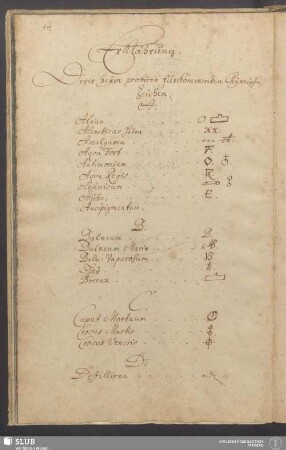 Erklährung
Derer beÿm probiren fürkommenden Chÿmischen
Zeichen.
A.
Alaun
Alembicus, Helm XX.
Amalgama aaa
Aqva Fort
Antimonium
Aqva Regis
Arsenicum
Asche E.
Auripigmentum.
B.
Balneum B.
Balneum Mariæ MB.
Baln: Vaporosum VB
Bleÿ
Borrax
C.
Caput Mortuum
Crocus Martis
Crocus Veneris
D.
Destilliren
SLUB